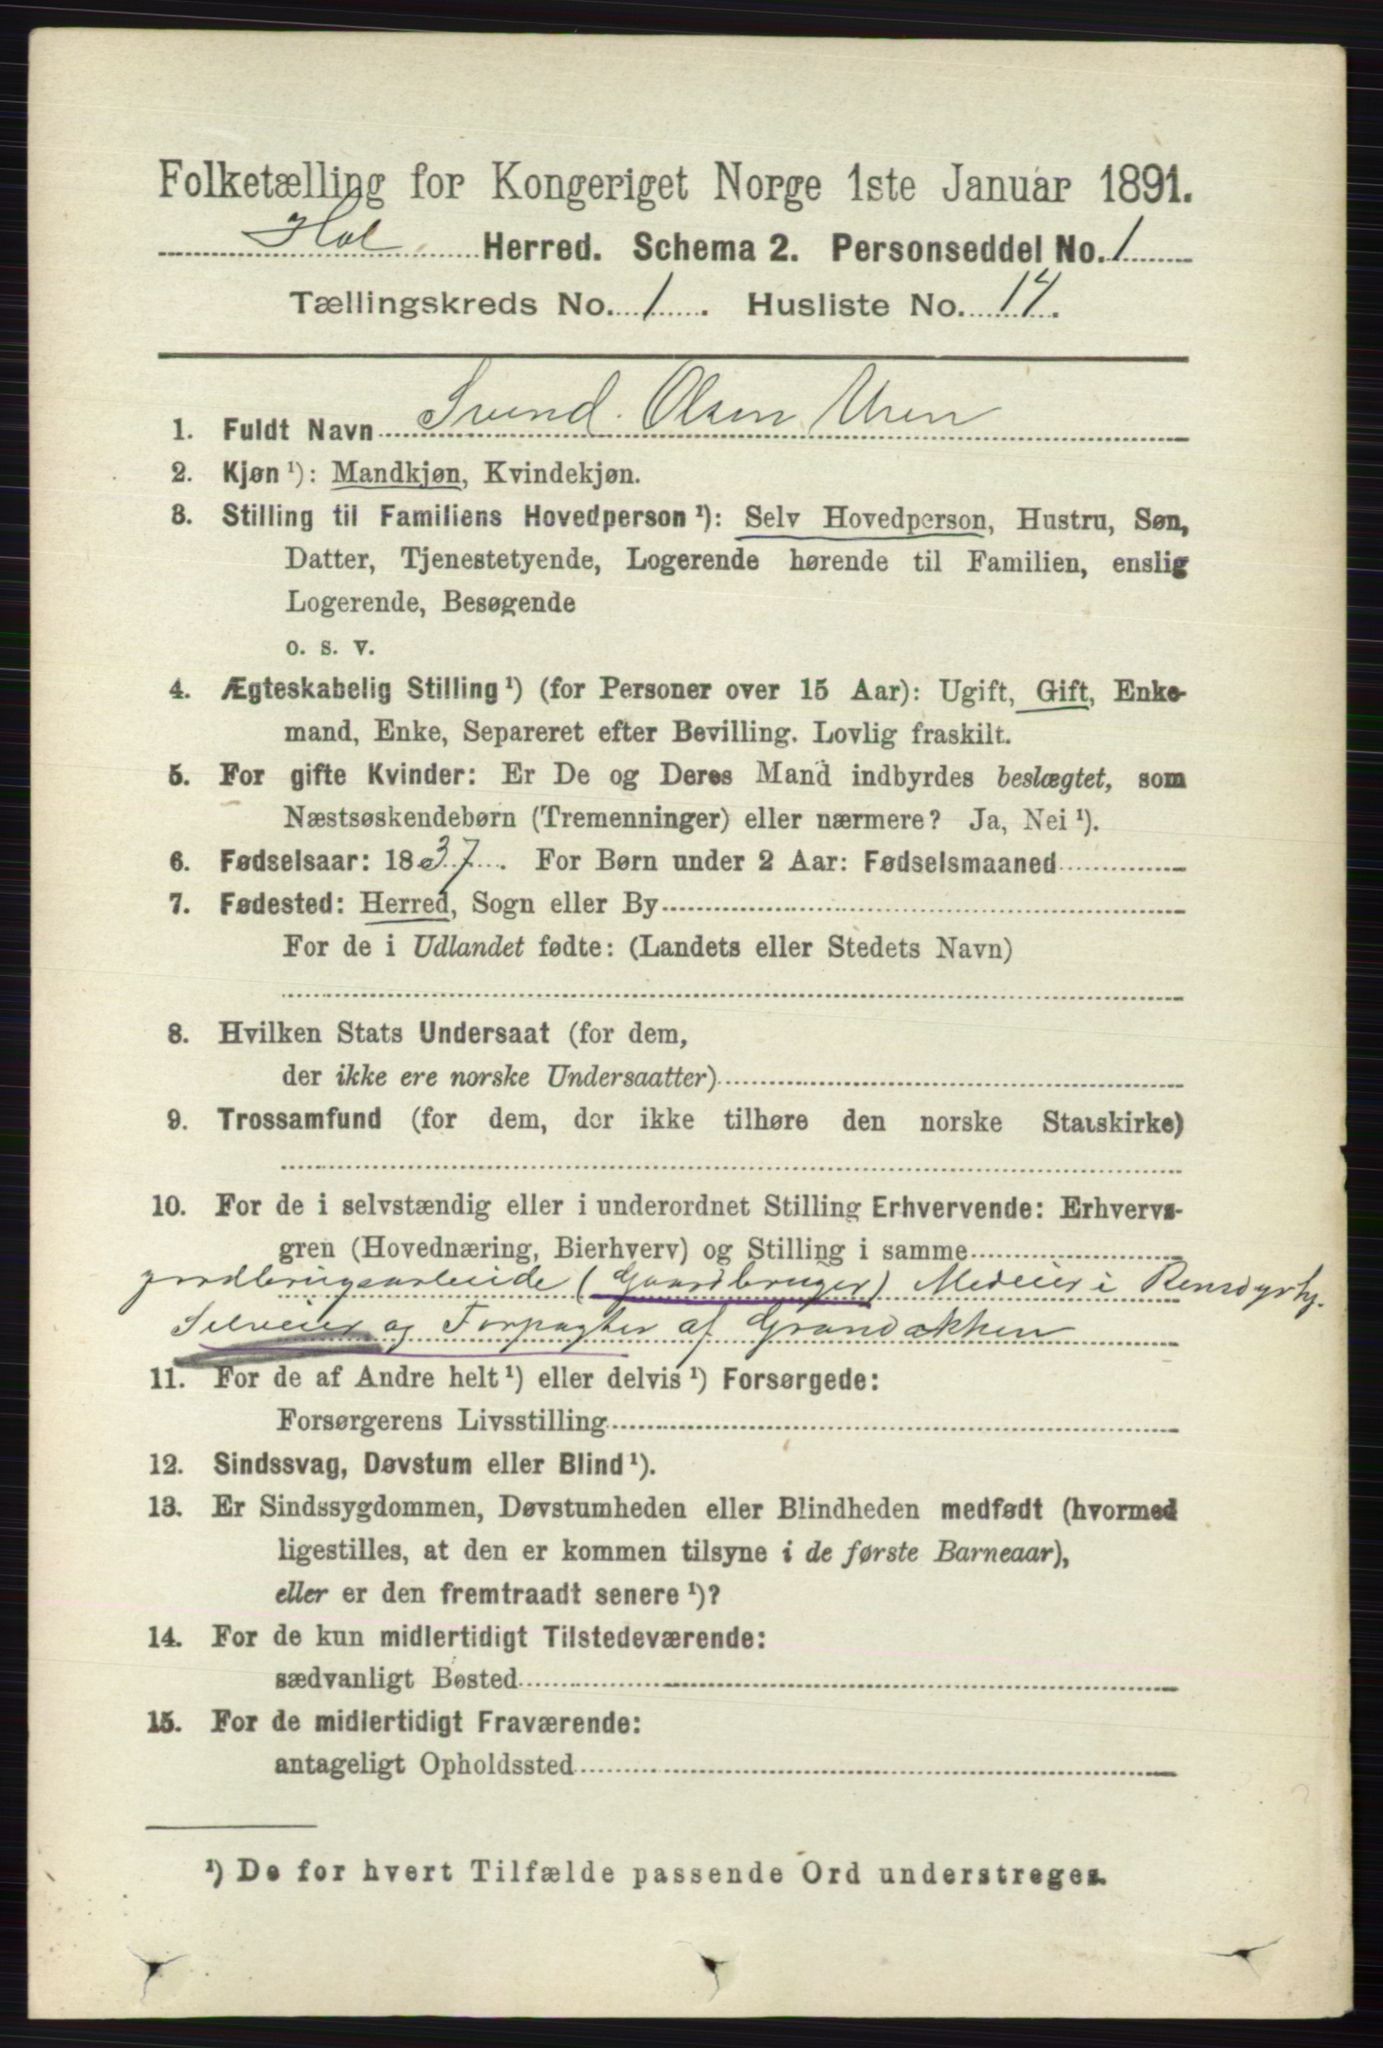 Folketælling for Kongeriget Norge 1ste Januar 1891.
Hol Herred. Schema 2. Personseddel No. 1
Tællingskreds No. 1. Husliste No. 14.
1. Fuldt Navn Svend Olsen Uren
2. Kjøn ¹): Mandkjøn, Kvindekjøn.
3. Stilling til Familiens Hovedperson ¹): Selv Hovedperson, Hustru, Søn,
Datter, Tjenestetyende, Logerende hørende til Familien, enslig
Logerende, Besøgende
o. s. v.
4. Ægteskabelig Stilling ¹) (for Personer over 15 Aar): Ugift, Gift, Enke-
mand, Enke, Separeret efter Bevilling. Lovlig fraskilt.
5. For gifte Kvinder: Er De og Deres Mand indbyrdes beslægtet, som
Næstsøskendebørn (Tremenninger) eller nærmere? Ja, Nei ¹).
6. Fødselsaar: 1837. For Børn under 2 Aar: Fødselsmaaned
7. Fødested: Herred, Sogn eller By
For de i Udlandet fødte: (Landets eller Stedets Navn)
8. Hvilken Stats Undersaat (for dem,
der ikke ere norske Undersaatter)
9. Trossamfund (for dem, der ikke tilhøre den norske Statskirke)
10. For de i selvstændig eller i underordnet Stilling Erhvervende: Erhvervs-
gren (Hovednæring, Bierhverv) og Stilling i samme
jordbrugsarbeide (Gaardbruger) Medeier i Rensdyrhj.
Selveier og Forpagter af
11. For de af Andre helt ¹) eller delvis ¹) Forsørgede:
Forsørgerens Livsstilling
12. Sindssvag, Døvstum eller Blind ¹).
13. Er Sindssygdommen, Døvstumheden eller Blindheden medfødt (hvormed
ligestilles, at den er kommen tilsyne i de første Barneaar),
eller er den fremtraadt senere ¹)?
14. For de kun midlertidigt Tilstedeværende:
sædvanligt Bosted
15. For de midlertidigt Fraværende:
antageligt Opholdssted
¹) De for hvert Tilfælde passende Ord understreges.